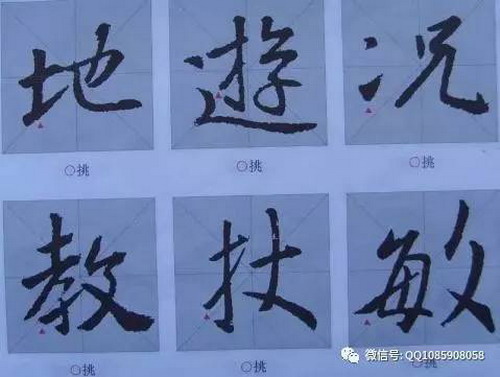 地 遊 况
○挑 ○挑 ○挑
教 扙 敏
○挑 ○挑 ○挑
微信号: QQ1085908058